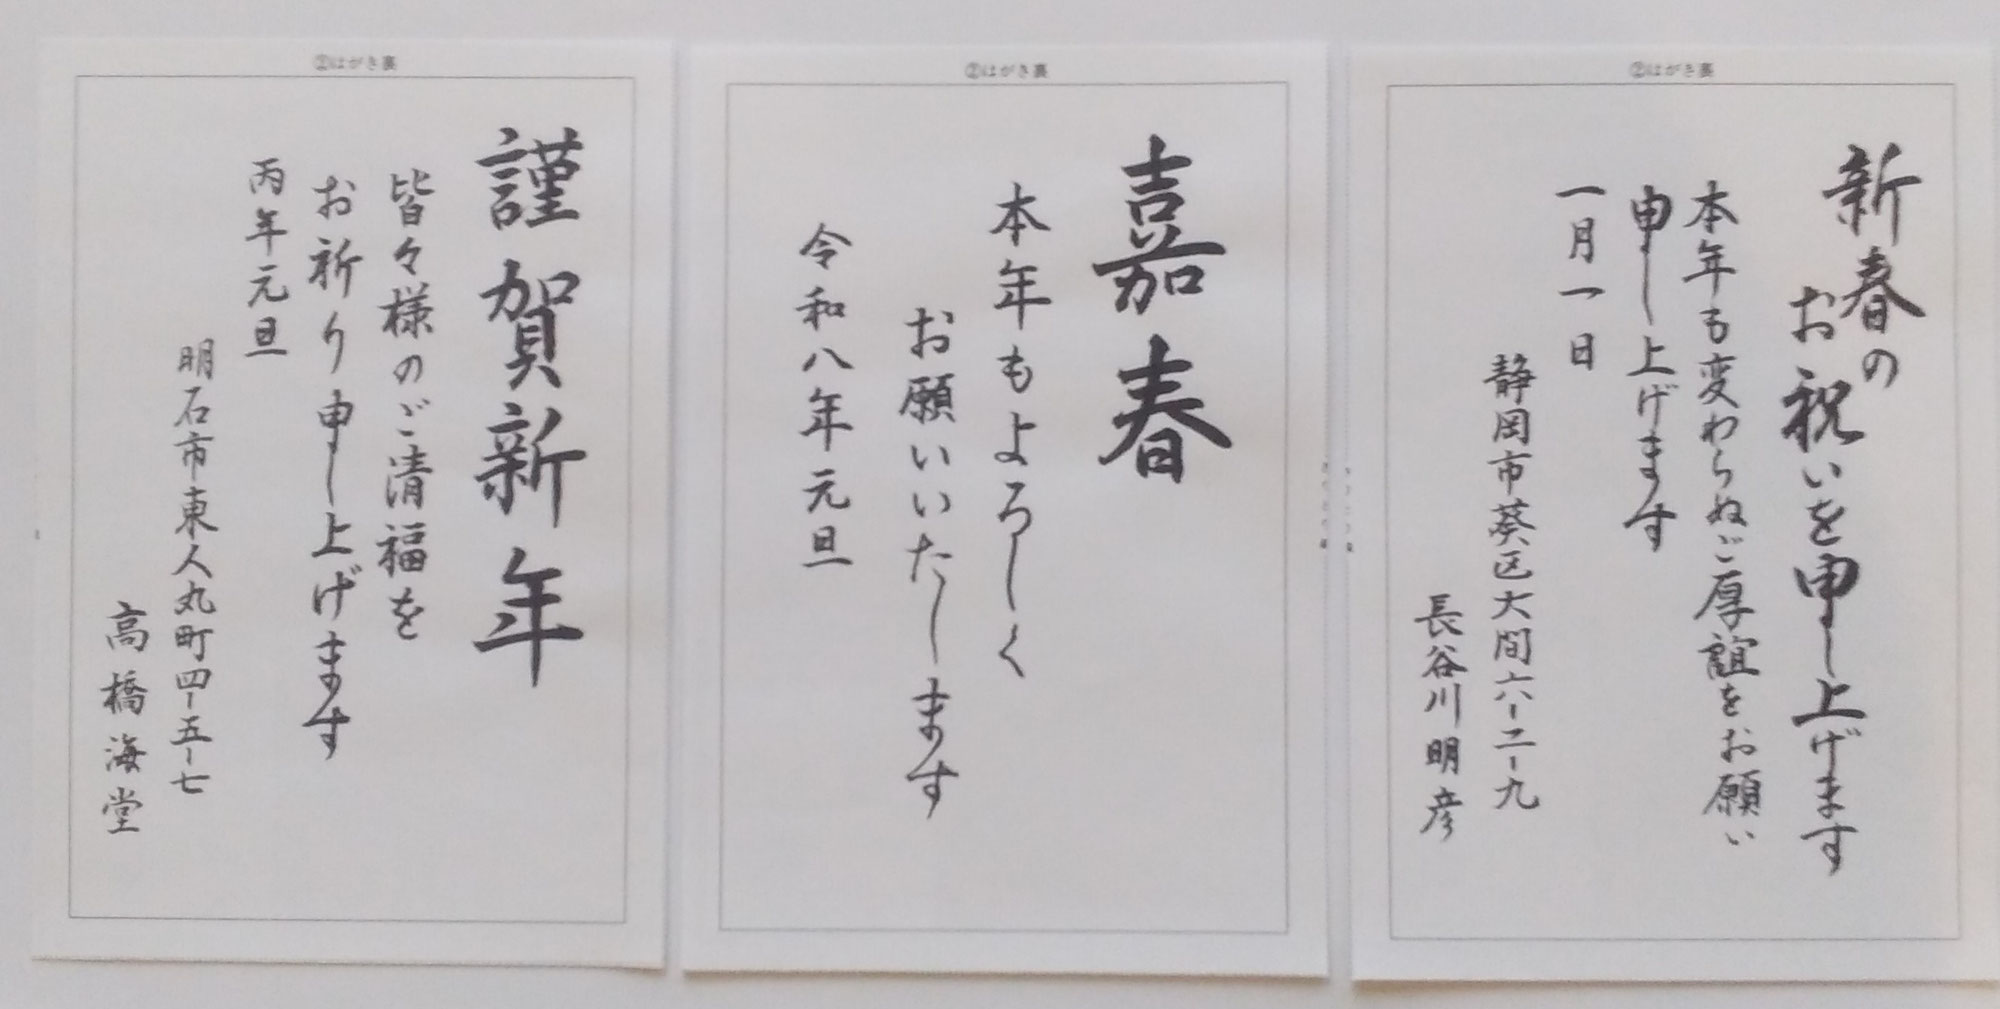 ②はがき裏
新春の
お祝いを申し上げます
本年も変わらぬご厚誼をお願い
申し上げます
一月一日
静岡市葵区大間六-二-九
長谷川明彦
②はがき裏
嘉春
本年もよろしく
お願いいたします
令和八年元旦
②はがき裏
謹賀新年
皆々様のご清福を
お祈り申し上げます
丙年元旦
明石市東人丸町四-五-七
高橋海堂